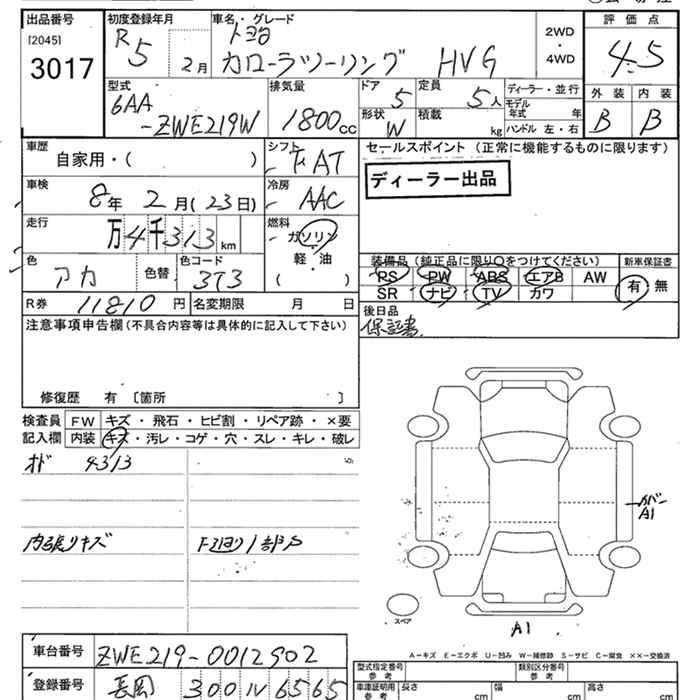 出品番号 初度登録年月 車名・グレード 評価点
[2045] R5 2月 トヨタ 2WD・4WD
3017 カローラツーリング HVG 4.5
型式 排気量 ドア 5 定員 5人 ディーラー・並行 外装 内装
6AA-ZWE219W 1800cc 形状 W 積載 kg モデル年式 年 B B
ハンドル 左・右
車歴 自家用・( ) シフト FAT セールスポイント (正常に機能するものに限ります)
ディーラー出品
車検 8年 2月(23日) 冷房 AAC
走行 万4千313km 燃料 ガソリン・軽・油 ( )
色 アカ 色替 色コード 3T3
装備品(純正品に限り○をつけてください) 新車保証書
PS PW ABS エアB AW 有・無
SR ナビ TV カワ
R券 11810円 名変期限 月 日
後日品
保証書
注意事項申告欄(不具合内容等は具体的に記入して下さい)
修復歴 有 〔箇所 〕
検査員記入欄 FW キズ・飛石・ヒビ割・リペア跡・×要
内装 キズ・汚レ・コゲ・穴・スレ・キレ・破レ
オド 4313
内張りキズ
カバー A1
スペア
A1
A−キズ E−エクボ U−凹み W−補修跡 S−サビ C−腐食 ××−交換済
車台番号 ZWE219-0012502
登録番号 長岡 300 6565
型式指定番号 参考 類別区分番号 参考
車庫証明用 参考 長さ cm 幅 cm 高さ cm